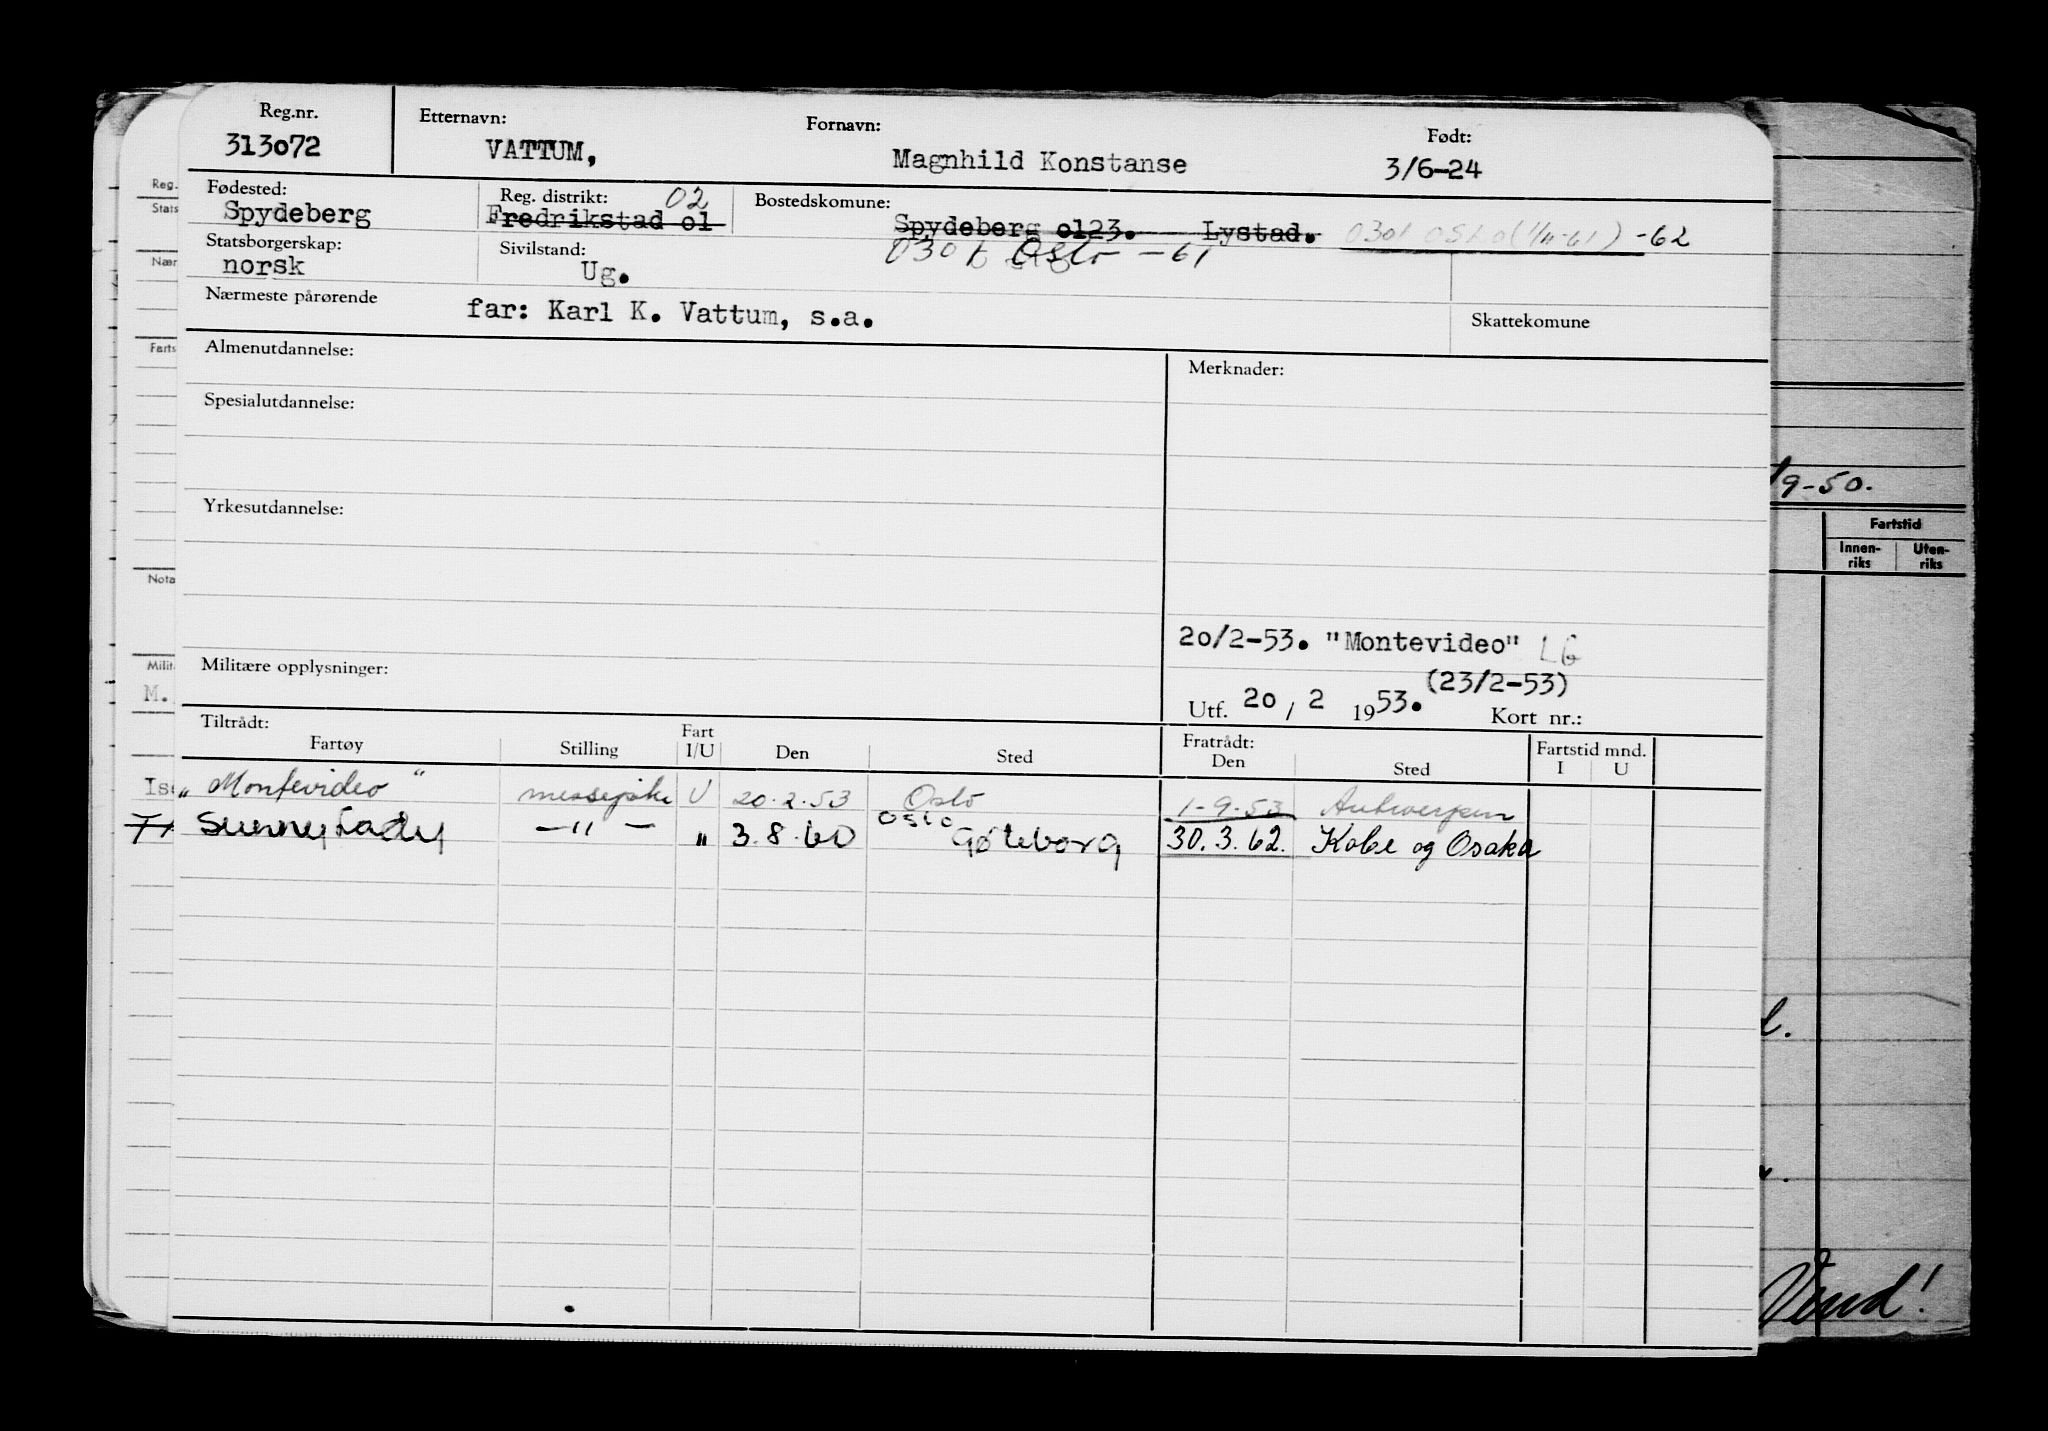 Reg.nr. Etternavn: Fornavn: Født:
313072 VATTUM, Magnhild Konstanse 3/6-24
Fødested: Reg. distrikt: 02 Bostedskomune:
Spydeberg Fredrikstad 01 Spydeberg 0123. Lystad. 0301 OSLO (1/11-61) -62
Statsborgerskap: Sivilstand: 0301 Oslo -61
norsk Ug.
Nærmeste pårørende far: Karl K. Vattum, s.a. Skattekomune
Almenutdannelse: Merknader:
Spesialutdannelse:
Yrkesutdannelse:
20/2-53. "Montevideo" LG
Militære opplysninger: (23/2-53)
Utf. 20/2 1953. Kort nr.:
Tiltrådt: Fratrådt:
Fartøy Stilling Fart I/U Den Sted Den Sted Fartstid mnd. I U
"Montevideo" messepike U 20.2.53 Oslo 1-9-53 Antwerpen
Sunny Lady -"- " 3.8.60 Oslo Gøteborg 30.3.62. Kobe og Osaka
Reg.
Stats
Nær
Farts
Nota
Milit
M.
Ise
/9-50.
Fartstid
Innen-riks Uten-riks
Vend!